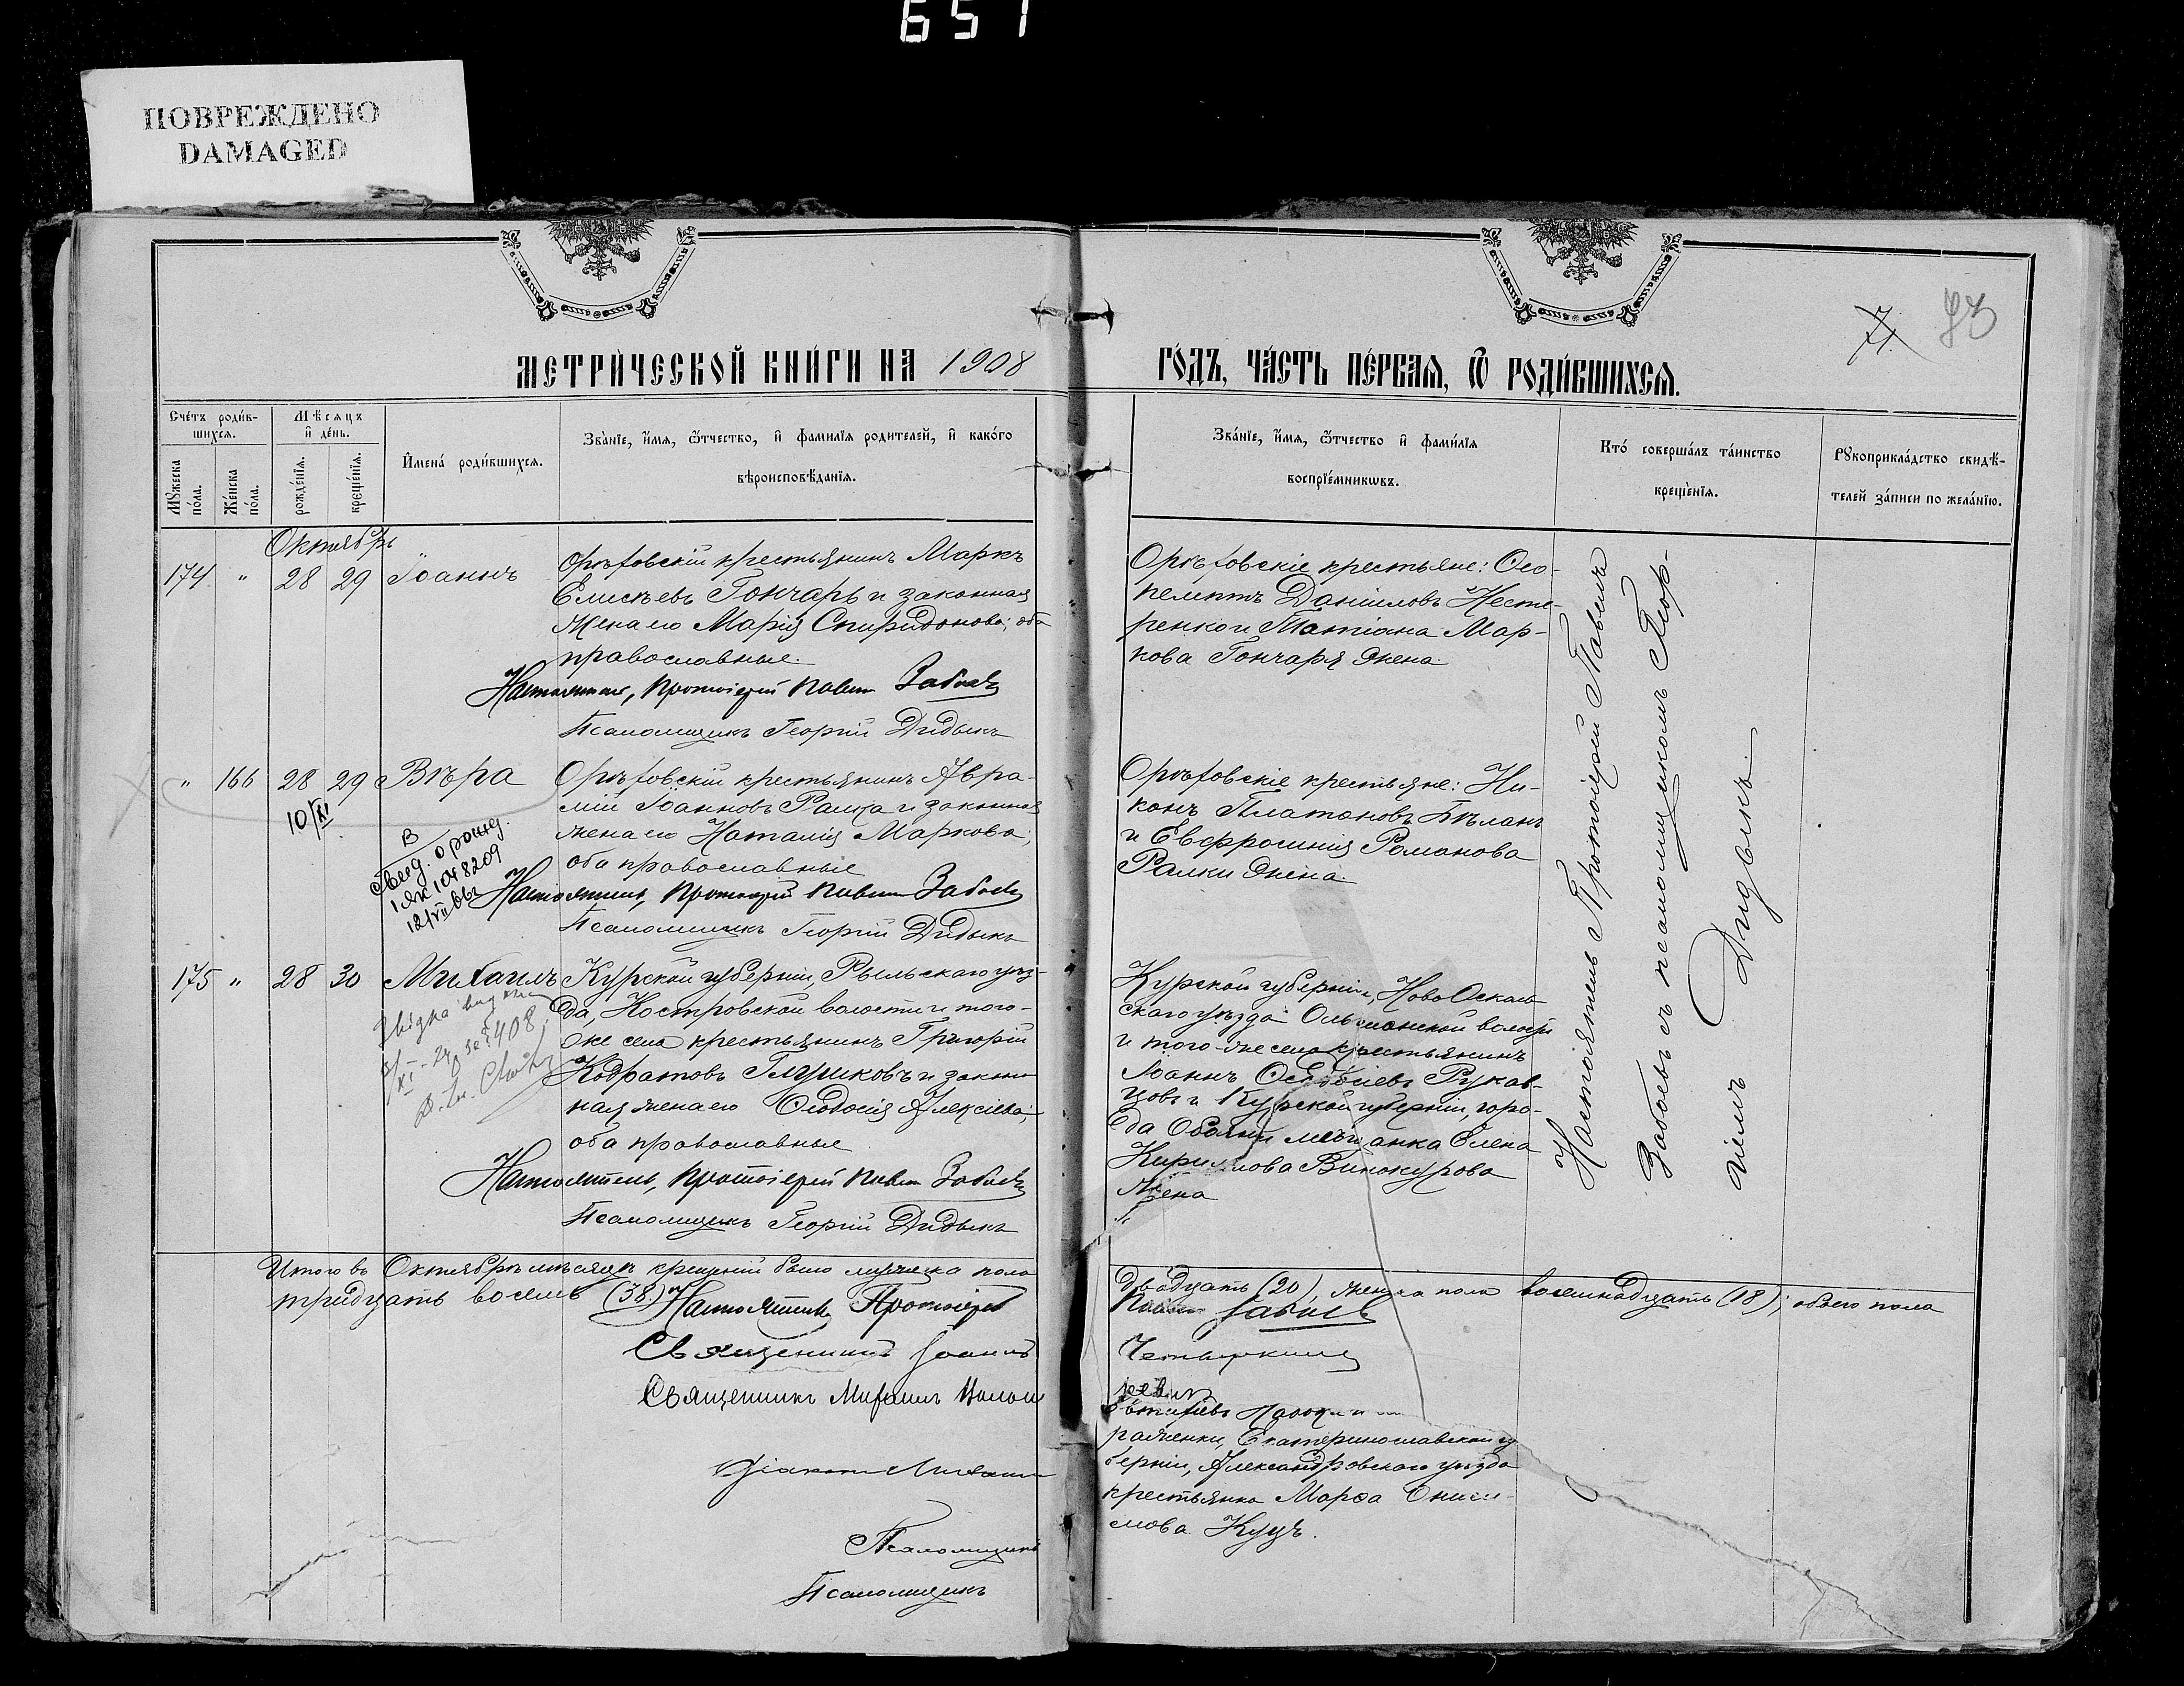 651
ПОВРЕЖДЕНО
DAMAGED
МЕТРИ́ЧЕСКОЙ КНИ́ГИ НА 1908
ГО́ДЪ, ЧА́СТЬ ПЕ́РВАЯ, Ѿ РОДИ́ВШИХСЯ.
71.
73
Сче́тъ роди́в-
шихся.
Мѣсяцъ
и де́нь.
Мꙋжеска
по́ла.
Же́нска
по́ла.
рожде́нїя.
креще́нїя.
Имена́ роди́вшихся.
Зва́нїе, и́мя, ѻ́тчество, и фами́лїя роди́телей, и како́го
вѣроисповѣ́данїя.
Зва́нїе, и́мя, ѻ́тчество и фами́лїя
воспрїе́мникѡвъ.
Кто́ соверша́лъ та́инство
креще́нїя.
Рꙋкоприкла́дство свидѣ́-
телей за́писи по жела́нїю.
Октябрь
174 " 28 29 Іоаннъ
Орѣховскій крестьянинъ Маркъ
Елисѣевъ Гончаръ и законная
жена его Марія Спиридонова; оба
православные.
Настоятель, Протоіерей Павелъ Забоевъ
Псаломщикъ Георгій Дидыкъ
Орѣховскіе крестьяне: Ѳео-
пемптъ Даніиловъ Несте-
ренко и Татіана Мар-
кова Гончаря жена.
" 166 28 29 Вѣра
10/XI
В
Свид. о рожд.
1 ЯК 1048209
12/VII
Орѣховскій крестьянинъ Авра-
мій Іоанновъ Ралка и законная
жена его Наталія Маркова;
оба православные
Настоятель, Протоіерей Павелъ Забоевъ
Псаломщикъ Георгій Дидыкъ
Орѣховскіе крестьяне: Ни-
конъ Платоновъ Бѣланъ
и Евфросинія Романова
Ралки жена.
175 " 28 30 Михаилъ
408
Курской губерніи, Рыльскаго уѣз-
да, Костровской волости и того-
же села крестьянинъ Григорій
Кодратовъ Глушковъ и закон-
ная жена его Ѳеодосія Алексіева;
оба православные
Настоятель, Протоіерей Павелъ Забоевъ
Псаломщикъ Георгій Дидыкъ
Курской губерніи, НовоОсколь-
скаго уѣзда Ольшанской волости
и того-же села крестьянинъ
Іоаннъ Рукав-
цовъ и Курской губерніи, горо-
да Обояни мѣщанка Елена
Кириллова Винокурова
жена
Настоятель Протоіерей Павелъ
Забоевъ съ псаломщикомъ Геор-
гіемъ Дидыкъ.
Итого въ Октябрѣ мѣсяцѣ крещеній было мужеска пола
двадцать (20), женска пола восемнадцать (18); обоего пола
тридцать восемь (38.)
Настоятель Протоіерей
Павелъ Забоевъ
Священникъ Іоаннъ
Священникъ Михаилъ
Діаконъ
Псаломщикъ
Псаломщикъ
Екатеринославской гу-
берніи, Александровскаго уѣзда
крестьянка Марѳа Ониси-
мова Куцъ.